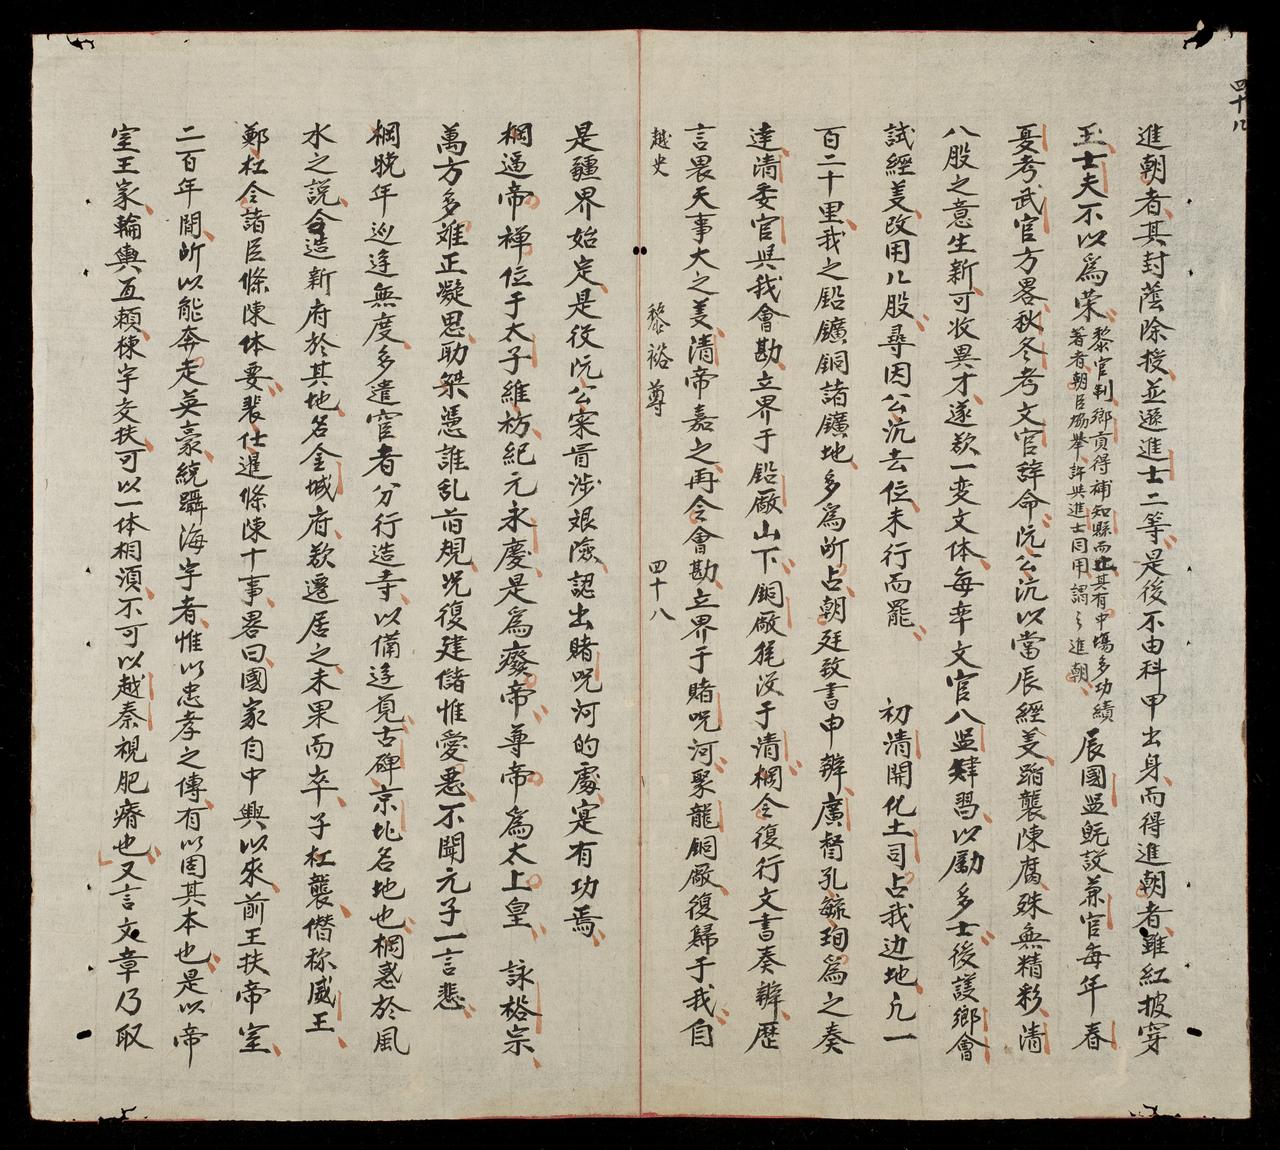 四十八
進朝者其封蔭除授並遜進士二等是後不由科甲出身而得進朝者雖紅披穿
玉士夫不以爲荣
黎官制鄉貢得補知縣而止其有中塲多功績
著者朝臣協舉許與進士同用謂之進朝
辰國監既設兼官每年春
夏考武官方畧秋冬考文官辞命阮公沆以當辰經義蹈襲陳腐殊無精彩清
八股之意生新可收異才遂欲一变文体每率文官八监肄習以勵多士後議鄉會
試經義改用八股尋因公沆去位未行而罷　初清開化土司占我边地凢一
百二十里我之鉛鑛銅諸鑛地多爲所占朝廷致書申辨廣督孔毓珣爲之奏
達清委官與我會勘立界于鉛廠山下銅廠竟没于清棡令復行文書奏辨歴
言畏天事大之義清帝嘉之再令會勘立界于賭咒河聚龍銅廠復歸于我自
越史　黎裕尊　四十八
是疆界始定是役阮公寀嘗涉艰險認出賭咒河的處寔有功焉
棡逼帝禅位于太子維祊紀元永慶是爲癈帝尊帝爲太上皇　詠裕宗
萬方多难正凝思助桀憑誰乱首規咒復建儲惟愛惡不聞元子一言悲
棡晚年巡逰無度多遣宦者分行造寺以備逰覓古碑京圠名地也棡惑於風
水之説合造新府於其地名金城府欲遷居之未果而卒子杠襲僭称威王
鄭杠令諸臣條陳体要裴仕暹條陳十事畧曰國家自中興以來前王扶帝室
二百年間所以能奔走英豪統躡海宇者惟以忠孝之傳有以固其本也是以帝
室王家輪輿互頼棟宇交扶可以一体相湏不可以越秦視肥瘠也又言文章乃取